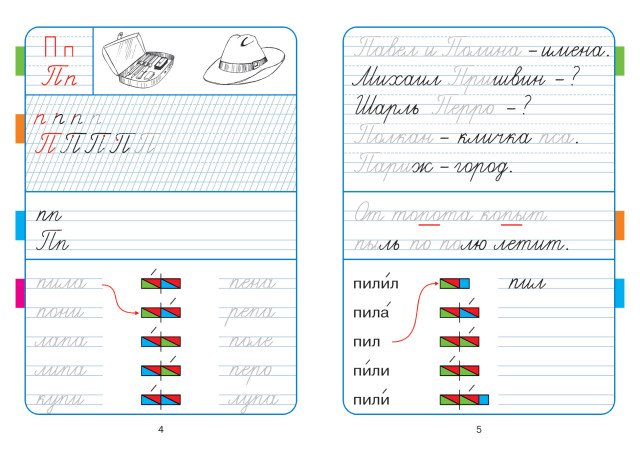 Пп
Пп
п п п п
П П П П П
пп
Пп
пила
пена
пони
репа
лапа
поле
липа
перо
купи
лупа
4
Павел и Полина – имена.
Михаил Пришвин – ?
Шарль Перро – ?
Полкан – кличка пса.
Париж – город.
От топота копыт
пыль по полю летит.
пили́л
пил
пила́
пил
пи́ли
пили́
5